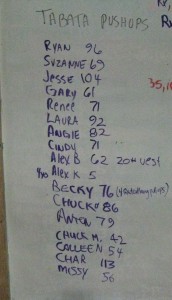 TABATA PUSHUPS
RYAN 96
SUZANNE 69
Jesse 104
GARY 61
Renee 71
LAURA 92
ANGIE 82
CINDY 71
Alex B 62 20# vest
Alex K 5
BECKY 76
CHUCK 86
ANTON 79
CHUCK M. 42
COLLEEN 54
CHAR 113
MISSY 56